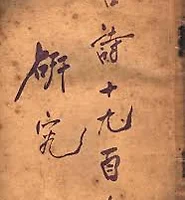 古詩十九首
研究